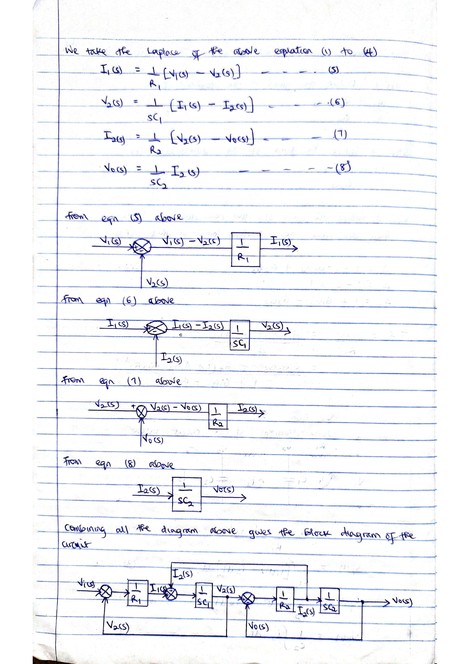 We take the Laplace of the above equation (1) to (4)
I₁(s) = 1/R₁ [V₁(s) - V₂(s)] - - - - (5)
V₂(s) = 1/SC₁ [I₁(s) - I₂(s)] - - - - - - (6)
I₂(s) = 1/R₂ [V₂(s) - V₀(s)] - - - - (7)
V₀(s) = 1/SC₂ I₂(s) - - - - - - (8)
from eqn (5) above
V₁(s) + V₁(s) - V₂(s) 1/R₁ I₁(s)
V₂(s)
from eqn (6) above
I₁(s) I₁(s) - I₂(s) 1/SC₁ V₂(s)
I₂(s)
from eqn (7) above
V₂(s) + V₂(s) - V₀(s) 1/R₂ I₂(s)
V₀(s)
from eqn (8) above
I₂(s) 1/SC₂ V₀(s)
Combining all the diagram above gives the block diagram of the
circuit
I₂(s)
V₁(s) 1/R₁ I₁(s) 1/SC₁ V₂(s) 1/R₂ I₂(s) 1/SC₂ V₀(s)
V₂(s) V₀(s)